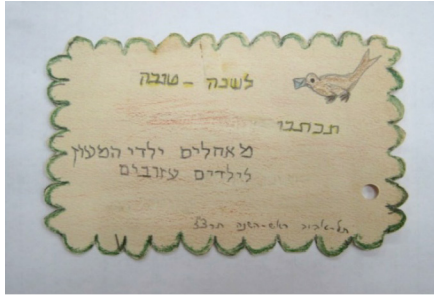 לשנה - טובה
תכתבו
מאחלים ילדי המעון
לילדים עזובים
תל-אביב ראש-השנה תרצ"ג